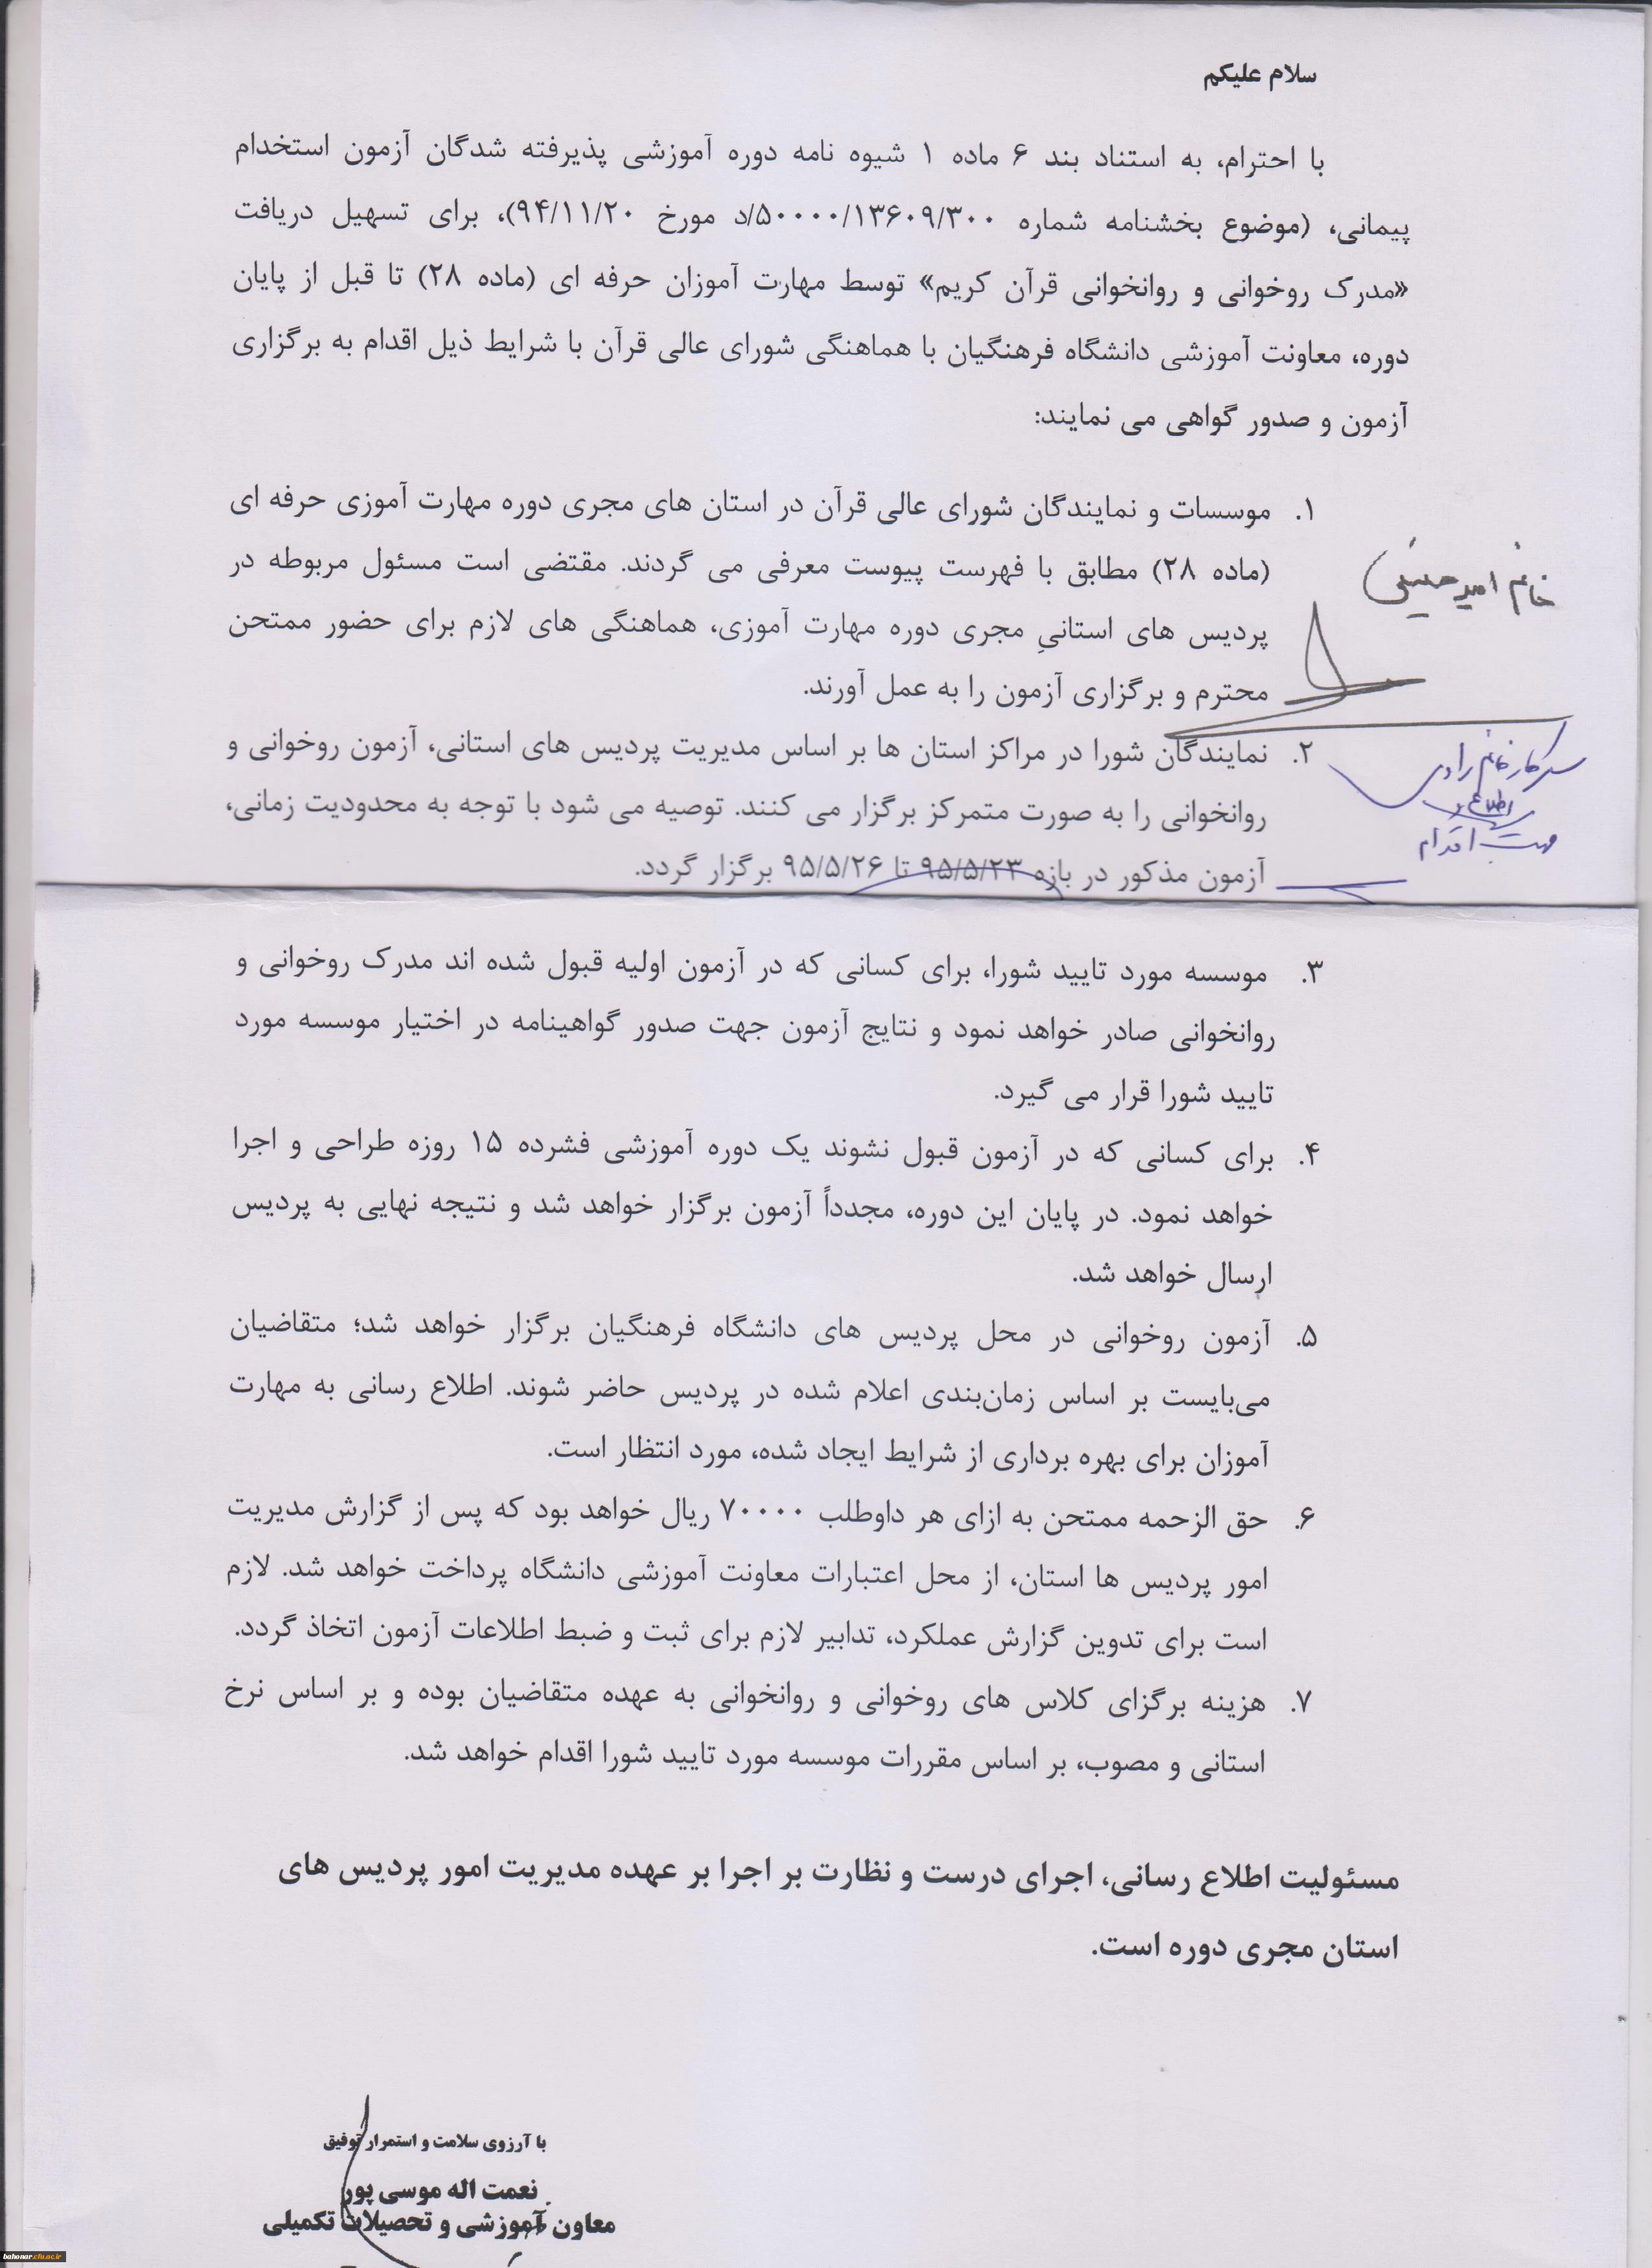 سلام علیکم
با احترام، به استناد بند ۶ ماده ۱ شیوه نامه دوره آموزشی پذیرفته شدگان آزمون استخدام
پیمانی، (موضوع بخشنامه شماره ۵۰۰۰۰/۱۳۶۰۹/۳۰۰/د مورخ ۹۴/۱۱/۲۰)، برای تسهیل دریافت
«مدرک روخوانی و روانخوانی قرآن کریم» توسط مهارت آموزان حرفه ای (ماده ۲۸) تا قبل از پایان
دوره، معاونت آموزشی دانشگاه فرهنگیان با هماهنگی شورای عالی قرآن با شرایط ذیل اقدام به برگزاری
آزمون و صدور گواهی می نمایند:
۱. موسسات و نمایندگان شورای عالی قرآن در استان های مجری دوره مهارت آموزی حرفه ای
(ماده ۲۸) مطابق با فهرست پیوست معرفی می گردند. مقتضی است مسئول مربوطه در
پردیس های استانیِ مجری دوره مهارت آموزی، هماهنگی های لازم برای حضور ممتحن
محترم و برگزاری آزمون را به عمل آورند.
خانم امیرحسینی
۲. نمایندگان شورا در مراکز استان ها بر اساس مدیریت پردیس های استانی، آزمون روخوانی و
روانخوانی را به صورت متمرکز برگزار می کنند. توصیه می شود با توجه به محدودیت زمانی،
آزمون مذکور در بازه ۹۵/۵/۲۳ تا ۹۵/۵/۲۶ برگزار گردد.
سرکار خانم رادی
جهت اقدام
۳. موسسه مورد تایید شورا، برای کسانی که در آزمون اولیه قبول شده اند مدرک روخوانی و
روانخوانی صادر خواهد نمود و نتایج آزمون جهت صدور گواهینامه در اختیار موسسه مورد
تایید شورا قرار می گیرد.
۴. برای کسانی که در آزمون قبول نشوند یک دوره آموزشی فشرده ۱۵ روزه طراحی و اجرا
خواهد نمود. در پایان این دوره، مجدداً آزمون برگزار خواهد شد و نتیجه نهایی به پردیس
ارسال خواهد شد.
۵. آزمون روخوانی در محل پردیس های دانشگاه فرهنگیان برگزار خواهد شد؛ متقاضیان
می‌بایست بر اساس زمان‌بندی اعلام شده در پردیس حاضر شوند. اطلاع رسانی به مهارت
آموزان برای بهره برداری از شرایط ایجاد شده، مورد انتظار است.
۶. حق الزحمه ممتحن به ازای هر داوطلب ۷۰۰۰۰ ریال خواهد بود که پس از گزارش مدیریت
امور پردیس ها استان، از محل اعتبارات معاونت آموزشی دانشگاه پرداخت خواهد شد. لازم
است برای تدوین گزارش عملکرد، تدابیر لازم برای ثبت و ضبط اطلاعات آزمون اتخاذ گردد.
۷. هزینه برگزای کلاس های روخوانی و روانخوانی به عهده متقاضیان بوده و بر اساس نرخ
استانی و مصوب، بر اساس مقررات موسسه مورد تایید شورا اقدام خواهد شد.
مسئولیت اطلاع رسانی، اجرای درست و نظارت بر اجرا بر عهده مدیریت امور پردیس های
استان مجری دوره است.
با آرزوی سلامت و استمرار توفیق
نعمت اله موسی پور
معاون آموزشی و تحصیلات تکمیلی
bahonar.cfu.ac.ir